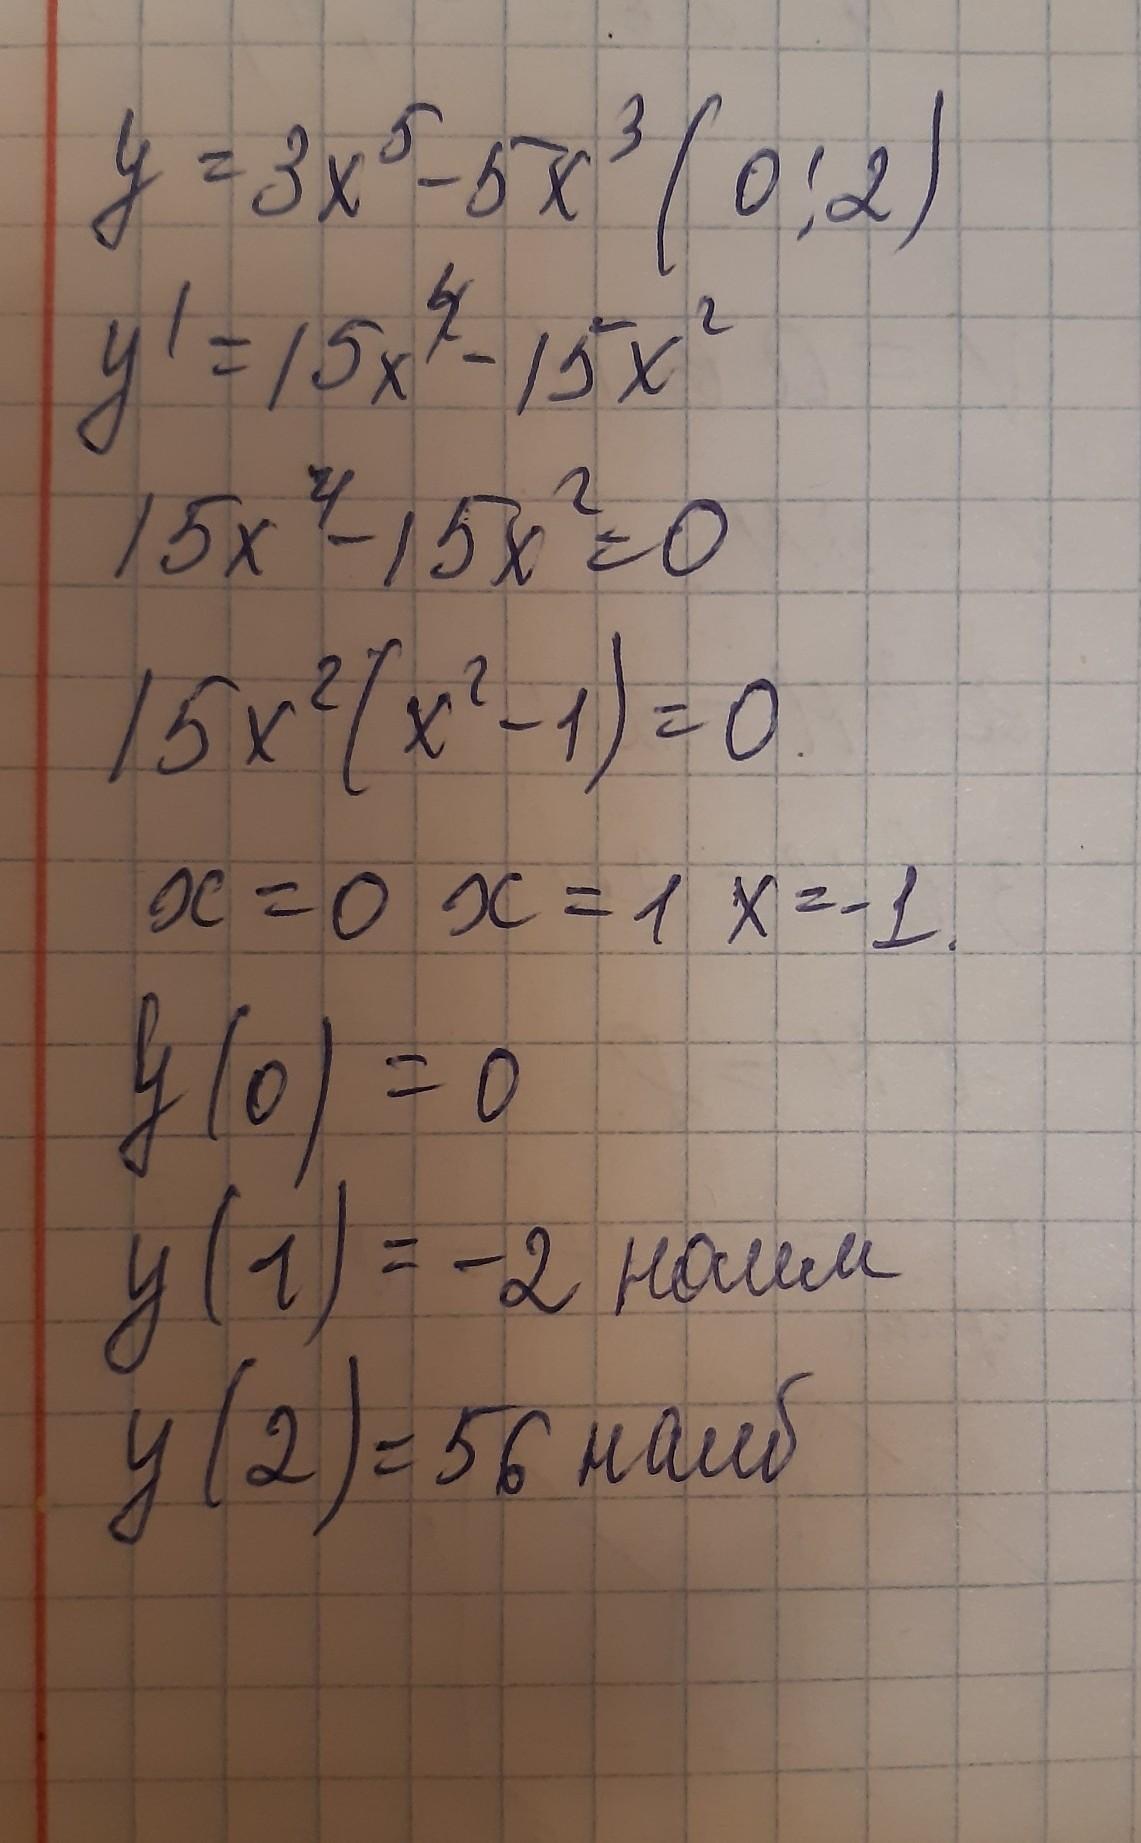 y = 3x⁵ - 5x³ (0;2)
y' = 15x⁴ - 15x²
15x⁴ - 15x² = 0
15x²(x² - 1) = 0
x = 0 x = 1 x = -1.
y(0) = 0
y(1) = -2 наим
y(2) = 56 наиб